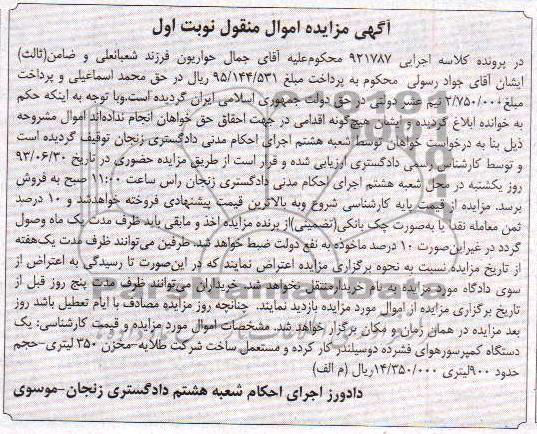 آگهی مزایده اموال منقول نوبت اول
در پرونده کلاسه اجرایی ۹۲۱۷۸۷ محکوم‌علیه آقای جمال حواریون فرزند شعبانعلی و ضامن(ثالث)
ایشان آقای جواد رسولی محکوم به پرداخت مبلغ ۹۵/۱۴۴/۵۳۱ ریال در حق محمد اسماعیلی و پرداخت
مبلغ ۳/۷۵۰/۰۰۰ نیم عشر دولتی در حق دولت جمهوری اسلامی ایران گردیده است.وبا توجه به اینکه حکم
به خوانده ابلاغ گردیده و ایشان هیچ‌گونه اقدامی در جهت احقاق حق خواهان انجام نداده‌اند اموال مشروحه
ذیل بنا به درخواست خواهان توسط شعبه هشتم اجرای احکام مدنی دادگستری زنجان توقیف گردیده است
و توسط کارشناس رسمی دادگستری ارزیابی شده و قرار است از طریق مزایده حضوری در تاریخ ۹۳/۰۶/۳۰
روز یکشنبه در محل شعبه هشتم اجرای احکام مدنی دادگستری زنجان راس ساعت ۱۱:۰۰ صبح به فروش
برسد. مزایده از قیمت پایه کارشناسی شروع وبه بالاترین قیمت پیشنهادی فروخته خواهدشد و ۱۰ درصد
ثمن معامله نقدا یا به‌صورت چک بانکی(تضمینی)از برنده مزایده اخذ و مابقی باید ظرف مدت یک ماه وصول
گردد در غیراین‌صورت ۱۰ درصد ماخوذه به نفع دولت ضبط خواهد شد. طرفین می‌توانند ظرف مدت یک‌هفته
از تاریخ مزایده نسبت به نحوه برگزاری مزایده اعتراض نمایند که در این‌صورت تا رسیدگی به اعتراض از
سوی دادگاه مورد مزایده به نام خریدارمنتقل نخواهد شد. خریداران می‌توانند ظرف مدت پنج روز قبل از
تاریخ برگزاری مزایده از اموال مورد مزایده بازدید نمایند. چنانچه روز مزایده مصادف با ایام تعطیل باشد روز
بعد مزایده در همان زمان و مکان برگزار خواهد شد. مشخصات اموال مورد مزایده و قیمت کارشناسی: یک
دستگاه کمپرسورهوای فشرده دوسیلندر کار کرده و مستعمل ساخت شرکت طلایه-مخزن ۳۵۰ لیتری-حجم
حدود ۹۰۰لیتری ۱۴/۳۵۰/۰۰۰ریال (م الف)
دادورز اجرای احکام شعبه هشتم دادگستری زنجان-موسوی